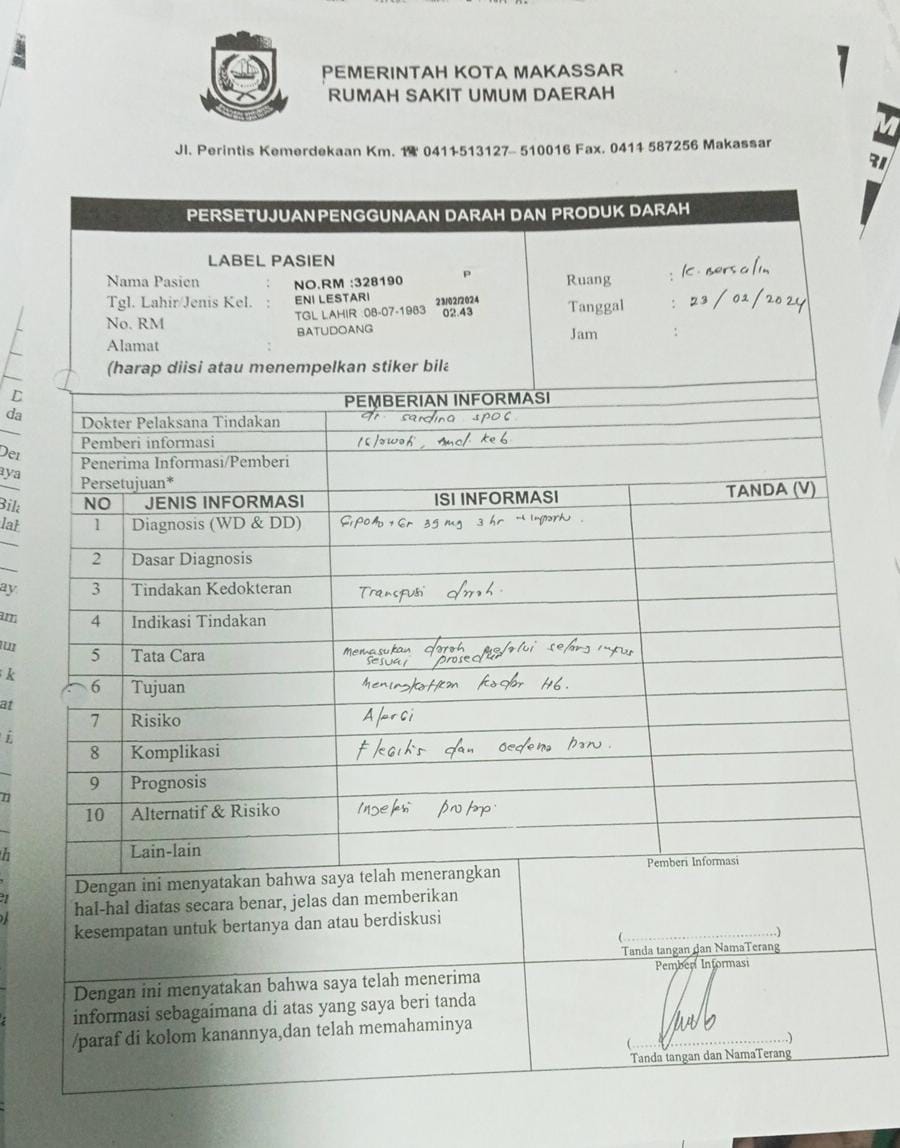 PEMERINTAH KOTA MAKASSAR
RUMAH SAKIT UMUM DAERAH
Jl. Perintis Kemerdekaan Km. ☎ 0411-513127– 510016 Fax. 0411 587256 Makassar
PERSETUJUAN PENGGUNAAN DARAH DAN PRODUK DARAH
LABEL PASIEN
Nama Pasien : NO.RM :328190 P
Tgl. Lahir/Jenis Kel. : ENI LESTARI 23/02/2024
No. RM TGL LAHIR :08-07-1983 02.43
Alamat : BATUDOANG
(harap diisi atau menempelkan stiker bila
Ruang : K. Bersalin
Tanggal : 23 / 02 / 2024
Jam :
PEMBERIAN INFORMASI
Dokter Pelaksana Tindakan dr. Sardina SPOG
Pemberi informasi Amd. keb
Penerima Informasi/Pemberi
Persetujuan*
NO JENIS INFORMASI ISI INFORMASI TANDA (V)
1 Diagnosis (WD & DD)
2 Dasar Diagnosis
3 Tindakan Kedokteran Transfusi darah.
4 Indikasi Tindakan
5 Tata Cara Memasukan darah melalui selang infus
sesuai prosedur
6 Tujuan Meningkatkan kadar Hb.
7 Risiko Alergi
8 Komplikasi dan oedema paru.
9 Prognosis
10 Alternatif & Risiko Injeksi
Lain-lain
Dengan ini menyatakan bahwa saya telah menerangkan
hal-hal diatas secara benar, jelas dan memberikan
kesempatan untuk bertanya dan atau berdiskusi
Pemberi Informasi
(......................................)
Tanda tangan dan NamaTerang
Dengan ini menyatakan bahwa saya telah menerima
informasi sebagaimana di atas yang saya beri tanda
/paraf di kolom kanannya,dan telah memahaminya
Pemberi Informasi
(......................................)
Tanda tangan dan NamaTerang